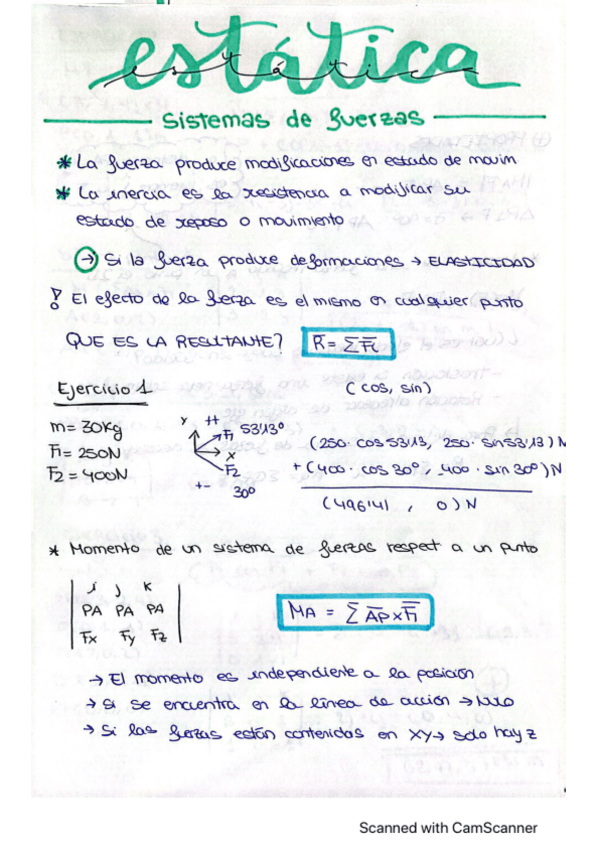 estática
Sistemas de fuerzas
* La fuerza produce modificaciones en estado de movim
* La inercia es la resistencia a modificar su
estado de reposo o movimiento
→ Si la fuerza produce deformaciones → ELASTICIDAD
! El efecto de la fuerza es el mismo en cualquier punto
QUE ES LA RESULTANTE? R̅ = ΣF̅i
Ejercicio 1 (cos, sin)
m = 30Kg
F1 = 250N
F2 = 400N
y ++ F1 53'13º
x
F2
+- 30º
(250· cos 53'13, 250· sin 53'13) N
+ (400· cos 30º, 400· sin 30º) N
(496'41, 0) N
* Momento de un sistema de fuerzas respect a un punto
i j k
PA PA PA
Fx Fy Fz
MA = Σ A̅P̅ x F̅i
→ El momento es independiente a la posición
→ Si se encuentra en la línea de acción → Nulo
→ Si las fuerzas están contenidas en XY → solo hay z
Scanned with CamScanner